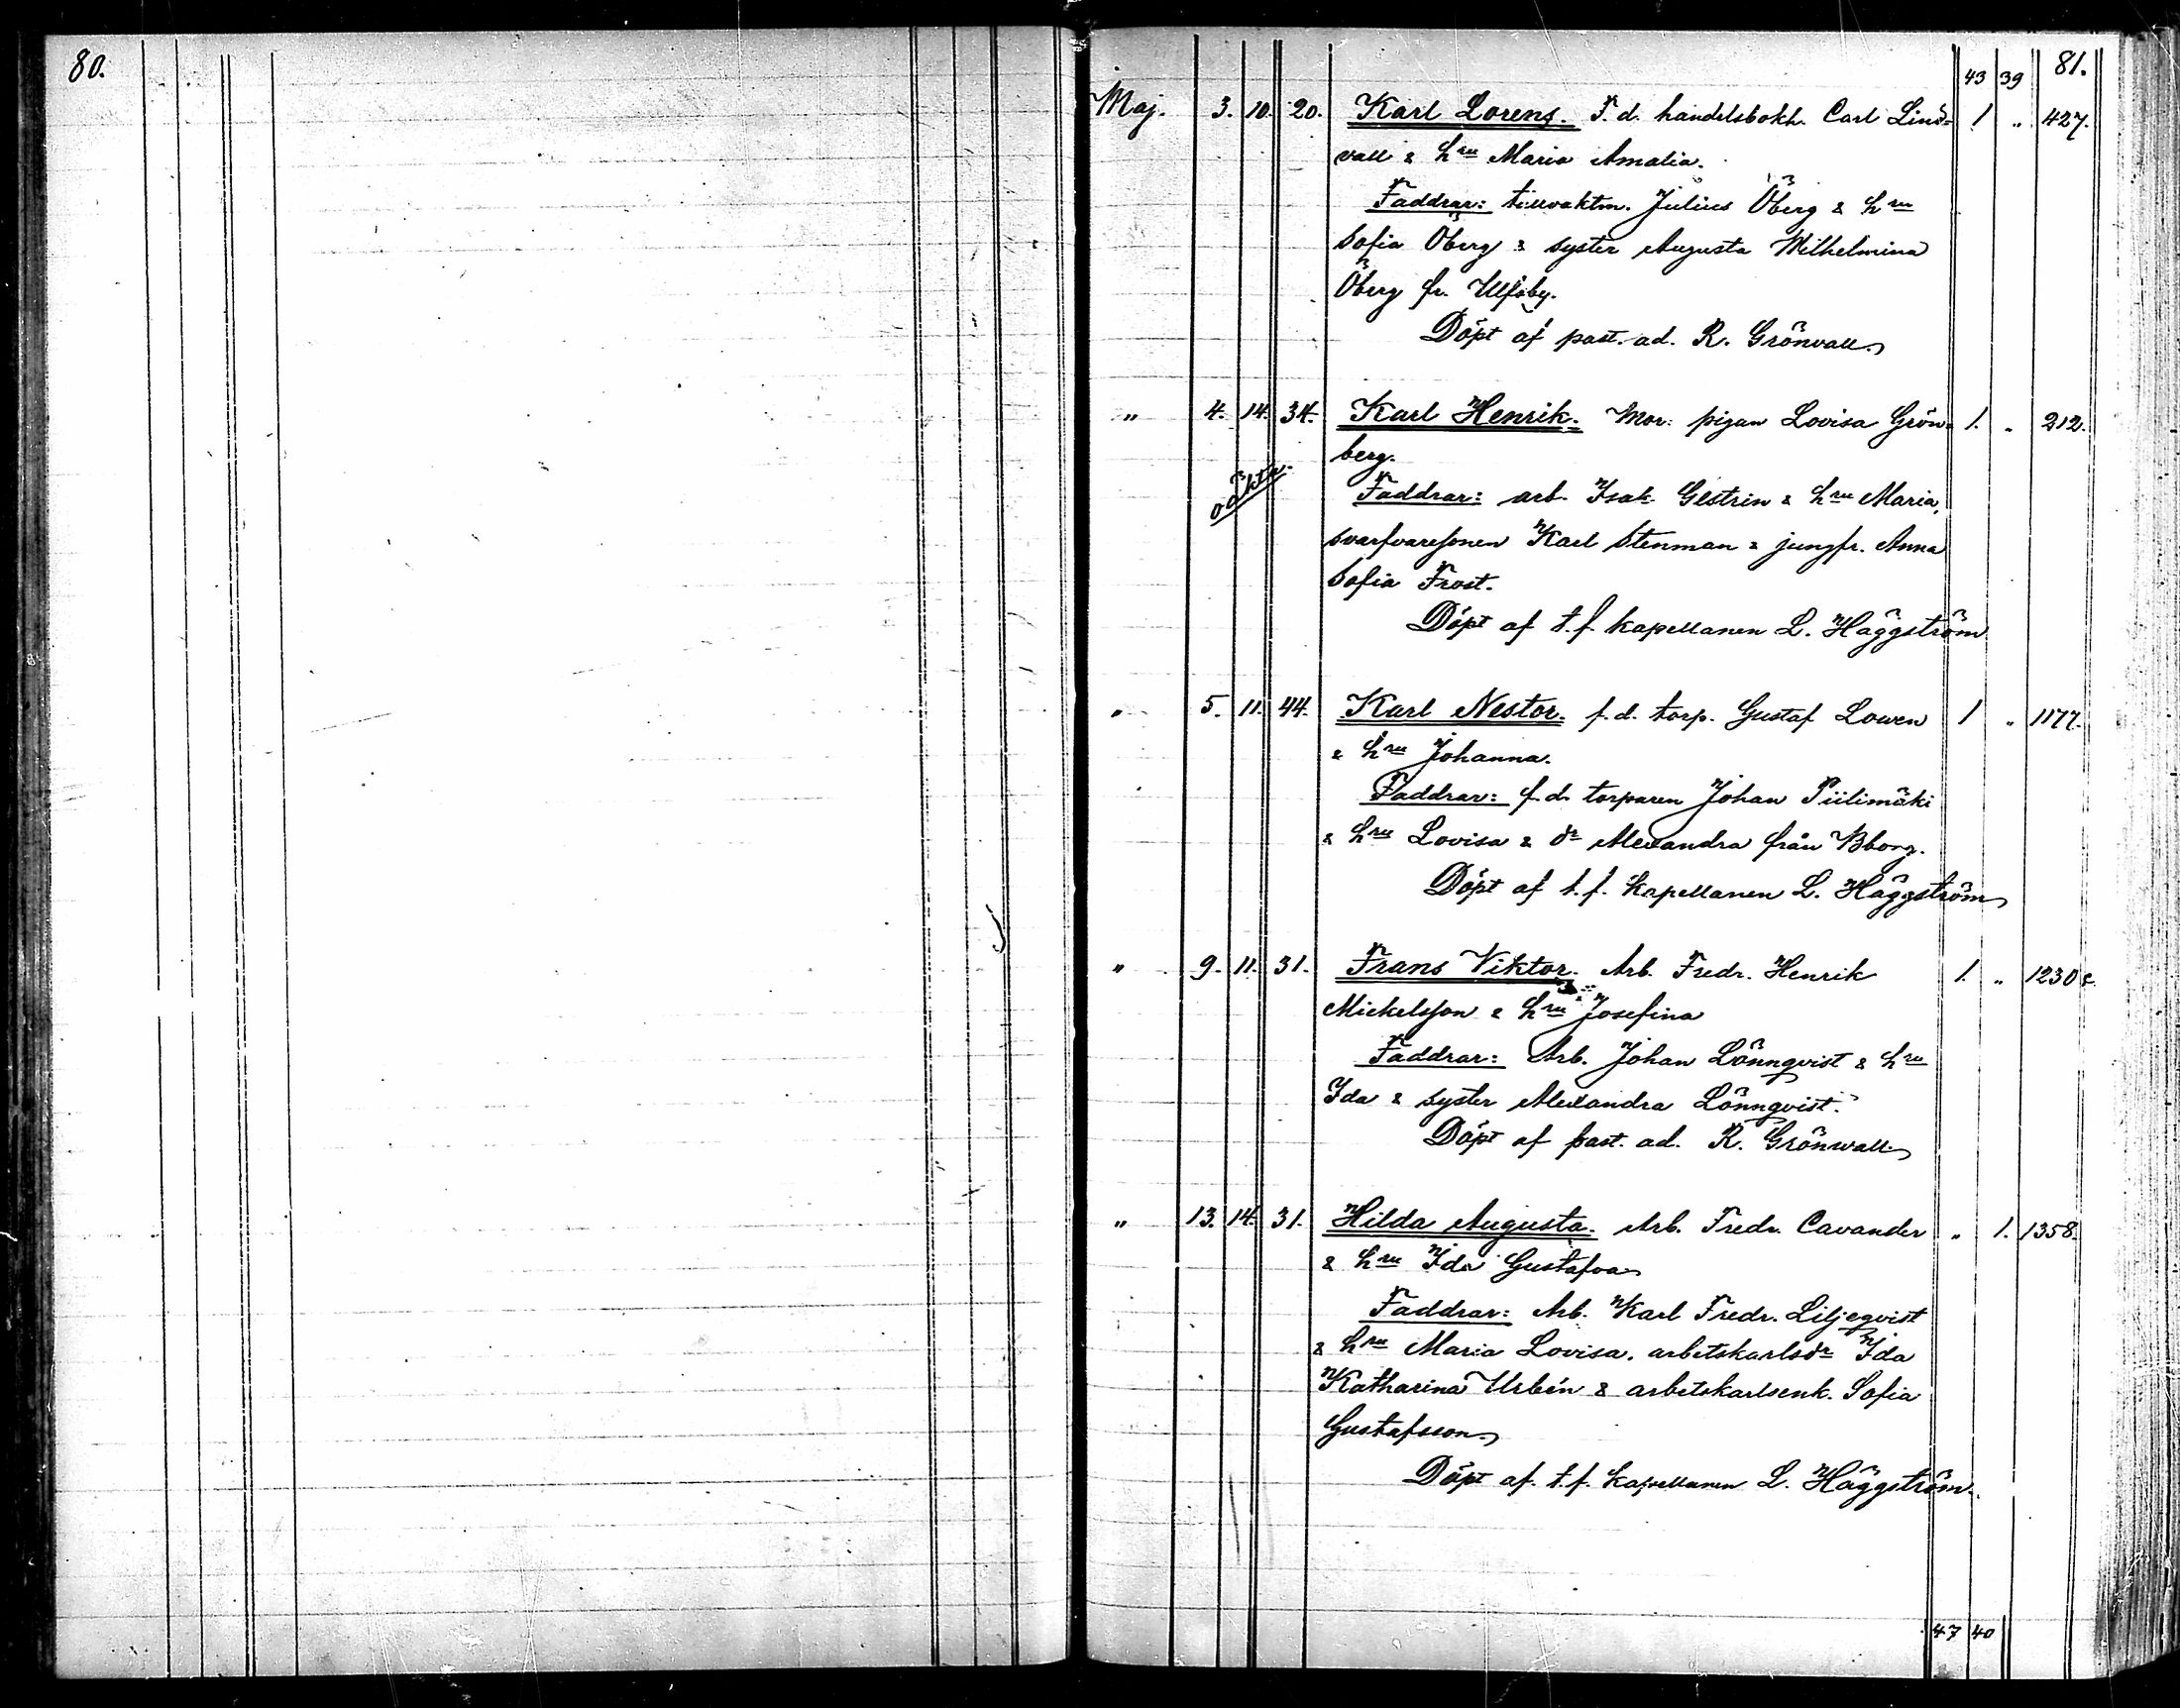 80.
81.
43 39
Maj. 3. 10. 20. Karl Lorens. F. d. handelsbokh. Carl Lind= 1 " 427.
vall & hru Maria Amalia.
Faddrar: tullvaktm. Julius Öberg & hru
Sofia Öberg & syster Augusta Wilhelmina
Öberg fr. Ulfsby.
Döpt af past. ad. R. Grönvall.
" 4. 14. 34. Karl Henrik. Mor: pigan Lovisa Grön= 1. " 212.
oäkta. berg.
Faddrar: arb. Isak Glestrin & hru Maria,
svarfvaresonen Karl Stenman & jungfr. Anna
Sofia Frost.
Döpt af t.f. kapellanen L. Häggström
" 5. 11. 44. Karl Nestor. f.d. torp. Gustaf Lowen 1 " 1177.
& hru Johanna.
Faddrar: f.d. torparen Johan Piilimäki
& hru Lovisa & dr Alexandra från Bborg.
Döpt af t.f. kapellanen L. Häggström
" 9. 11. 31. Frans Viktor. Arb. Fredr. Henrik 1. " 1230
Mickelsson & hru Josefina
Faddrar: Arb. Johan Lönnqvist & hru
Ida & syster Alexandra Lönnqvist.
Döpt af past. ad. R. Grönwall
" 13. 14. 31. Hilda Augusta. Arb. Fredr. Cavander " 1. 1358.
& hru Ida Gustafva
Faddrar: Arb. Karl Fredr. Liljeqvist
& hru Maria Lovisa, arbetskarlsdr Ida
Katharina Urbén & arbetskarlsenk. Sofia
Gustafsson
Döpt af. t.f. kapellanen L. Häggström.
47 40